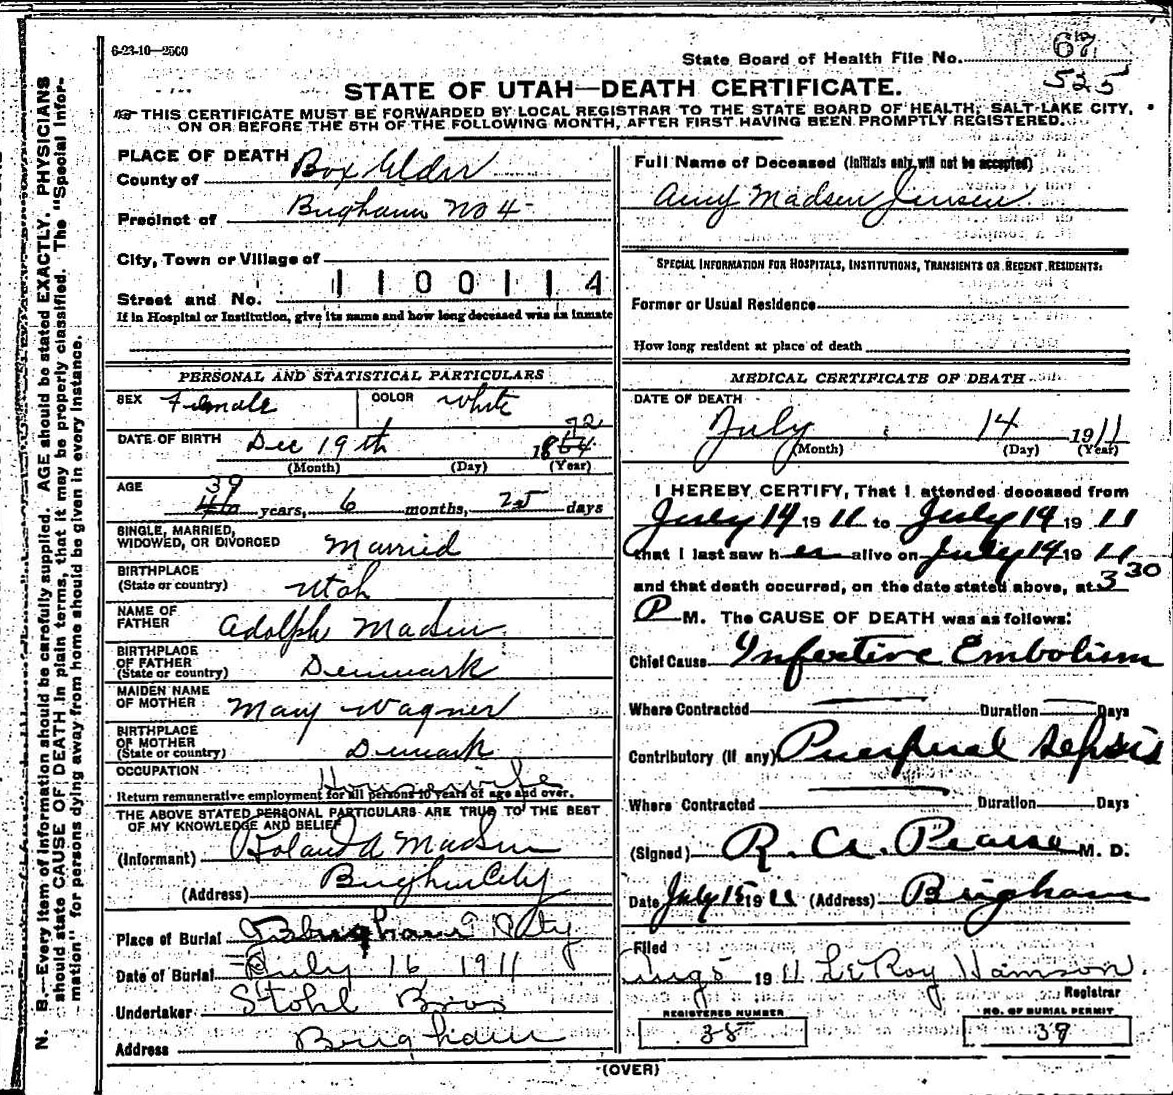 6-23-10—2500
State Board of Health File No. 67
525
STATE OF UTAH—DEATH CERTIFICATE.
THIS CERTIFICATE MUST BE FORWARDED BY LOCAL REGISTRAR TO THE STATE BOARD OF HEALTH, SALT LAKE CITY,
ON OR BEFORE THE 5TH OF THE FOLLOWING MONTH, AFTER FIRST HAVING BEEN PROMPTLY REGISTERED.
N. B.—Every item of information should be carefully supplied. AGE should be stated EXACTLY. PHYSICIANS
should state CAUSE OF DEATH in plain terms, that it may be properly classified. The "Special Infor-
mation" for persons dying away from home should be given in every instance.
PLACE OF DEATH
County of Box Elder
Precinct of Brigham No 4
City, Town or Village of
1100114
Street and No.
If in Hospital or Institution, give its name and how long deceased was an inmate
PERSONAL AND STATISTICAL PARTICULARS
SEX Female COLOR White
72
DATE OF BIRTH Dec 19th 1864
(Month) (Day) (Year)
39
AGE 46 years, 6 months, 25 days
SINGLE, MARRIED,
WIDOWED, OR DIVORCED Married
BIRTHPLACE
(State or country) Utah
NAME OF
FATHER Adolph Madsen
BIRTHPLACE
OF FATHER
(State or country) Denmark
MAIDEN NAME
OF MOTHER Mary Wagner
BIRTHPLACE
OF MOTHER
(State or country) Denmark
OCCUPATION Housewife
Return remunerative employment for all persons 10 years of age and over.
THE ABOVE STATED PERSONAL PARTICULARS ARE TRUE TO THE BEST
OF MY KNOWLEDGE AND BELIEF
(Informant) Roland A Madsen
(Address) Brigham City
Place of Burial Brigham City
Date of Burial July 16 1911
Undertaker Stohl Bros
Address Brigham
Full Name of Deceased (Initials only will not be accepted)
Amy Madsen Jensen
SPECIAL INFORMATION FOR HOSPITALS, INSTITUTIONS, TRANSIENTS OR RECENT RESIDENTS:
Former or Usual Residence
How long resident at place of death
MEDICAL CERTIFICATE OF DEATH
DATE OF DEATH
July 14 1911
(Month) (Day) (Year)
I HEREBY CERTIFY, That I attended deceased from
July 14 1911 to July 14 1911
that I last saw her alive on July 14 1911
and that death occurred, on the date stated above, at 3 30
P M. The CAUSE OF DEATH was as follows:
Chief Cause Infective Embolism
Where Contracted Duration Days
Contributory (if any) Puerperal Sepsis
Where Contracted Duration Days
(Signed) R. A. Pearse M. D.
Date July 15 1911 (Address) Brigham
Filed
Aug 5 1911 LeRoy Hamson
Registrar
REGISTERED NUMBER
38
NO. OF BURIAL PERMIT
39
(OVER)